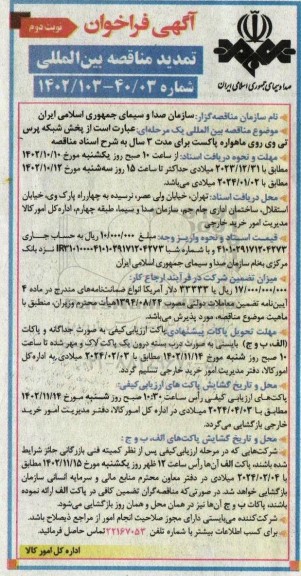 آگهی فراخوان
نوبت دوم
تمدید مناقصه بین‌المللی
شماره ۱۴۰۲/۱۰۳-۴۰/۰۳
صدا و سیمای جمهوری اسلامی ایران
نام سازمان مناقصه‌گزار: سازمان صدا و سیمای جمهوری اسلامی ایران
موضوع مناقصه بین المللی یک مرحله‌ای: عبارت است از پخش شبکه پرس
تی وی روی ماهواره پاکست برای مدت ۳ سال به شرح اسناد مناقصه
مهلت و نحوه دریافت اسناد: از ساعت ۱۰ صبح روز یکشنبه مورخ ۱۴۰۲/۱۰/۱۰
مطابق با ۲۰۲۳/۱۲/۳۱ میلادی حداکثر تا ساعت ۱۵ روز سه‌شنبه مورخ ۱۴۰۲/۱۰/۱۲
مطابق با ۲۰۲۴/۰۱/۰۲ میلادی می‌باشد.
محل دریافت اسناد: تهران، خیابان ولی عصر، نرسیده به چهارراه پارک وی، خیابان
استقلال، ساختمان اداری جام جم، سازمان صدا و سیما، طبقه چهارم، اداره کل امور کالا
مدیریت امور خرید خارجی
قیمت اسناد و نحوه واریز وجه: مبلغ ۱۰/۰۰۰/۰۰۰ ریال به حساب جاری
۴۱۰۱۰۲۹۱۷۱۲۰۴۲۷۳ و با شماره شبا IR۳۱۰۱۰۰۰۰۴۱۰۱۰۲۹۱۷۱۲۰۴۲۷۳ نزد بانک
مرکزی به‌نام سازمان صدا و سیمای جمهوری اسلامی ایران
میزان تضمین شرکت در فرآیند ارجاع کار:
۱۷/۰۰۰/۰۰۰/۰۰۰ ریال یا ۳۳۳۳۳ دلار آمریکا انواع ضمانت‌نامه‌های مندرج در ماده ۴
آیین‌نامه تضمین معاملات دولتی مصوب ۱۳۹۴/۰۸/۲۴ هیأت محترم وزیران، منطبق با
ماهیت موضوع مناقصه، مورد پذیرش می‌باشد.
مهلت تحویل پاکات پیشنهادی: پاکت ارزیابی کیفی به صورت جداگانه و پاکات
(الف، ب و ج) بایستی به صورت درب بسته درون یک پاکت لاک و مهر شده تا ساعت
۱۰ صبح روز شنبه مورخ ۱۴۰۲/۱۱/۱۴ مطابق با ۲۰۲۴/۰۲/۰۳ میلادی به اداره کل
امور کالا، دفتر مدیریت امور خرید خارجی تسلیم گردد.
محل و تاریخ گشایش پاکت های ارزیابی کیفی:
پاکت‌های ارزیابی کیفی رأس ساعت ۱۰:۳۰ صبح روز شنبه مورخ ۱۴۰۲/۱۱/۱۴
مطابق با ۲۰۲۴/۰۲/۰۳ میلادی در اداره کل امور کالا، دفتر مدیریت امور خرید
خارجی بازگشایی می‌گردد.
محل و تاریخ گشایش پاکت‌های الف، ب و ج:
شرکت‌هایی که در مرحله ارزیابی کیفی پس از نظر کمیته فنی بازرگانی حائز شرایط
شده باشند، پاکت الف آن‌ها رأس ساعت ۱۲ ظهر روز یکشنبه مورخ ۱۴۰۲/۱۱/۱۵ مطابق
با ۲۰۲۴/۰۲/۰۴ میلادی در دفتر معاون محترم منابع مالی و سرمایه انسانی سازمان
بازگشایی خواهد شد. در صورتی‌که مناقصه‌گران تضمین کافی در پاکت الف ارائه نموده
باشند، پاکات ب و ج آن‌ها نیز در همان محل و همان روز بازگشایی می‌شود.
شرکت‌کننده می‌بایستی دارای مجوز صلاحیت انجام امور از مراجع ذیصلاح باشد.
برای کسب اطلاعات بیشتر با شماره تلفن ۲۲۱۶۷۰۵۳ تماس حاصل فرمائید.
اداره کل امور کالا